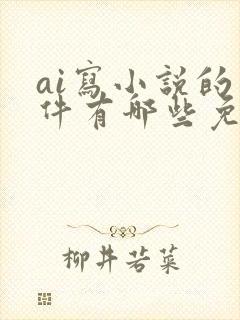 ai寫小說的
件有哪些免
柳井若菜